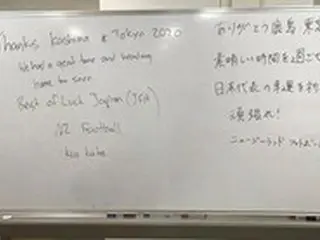 Thanks Kashima & Tokyo 2020
We had a great time and heading
home for sure
Best of Luck Japan (JFA)
NZ Football
kia kaha
ありがとう鹿島 東京
素晴しい時間を過ごせ
日本代表の幸運を祈
頑張れ!
ニュージーランド フットボー